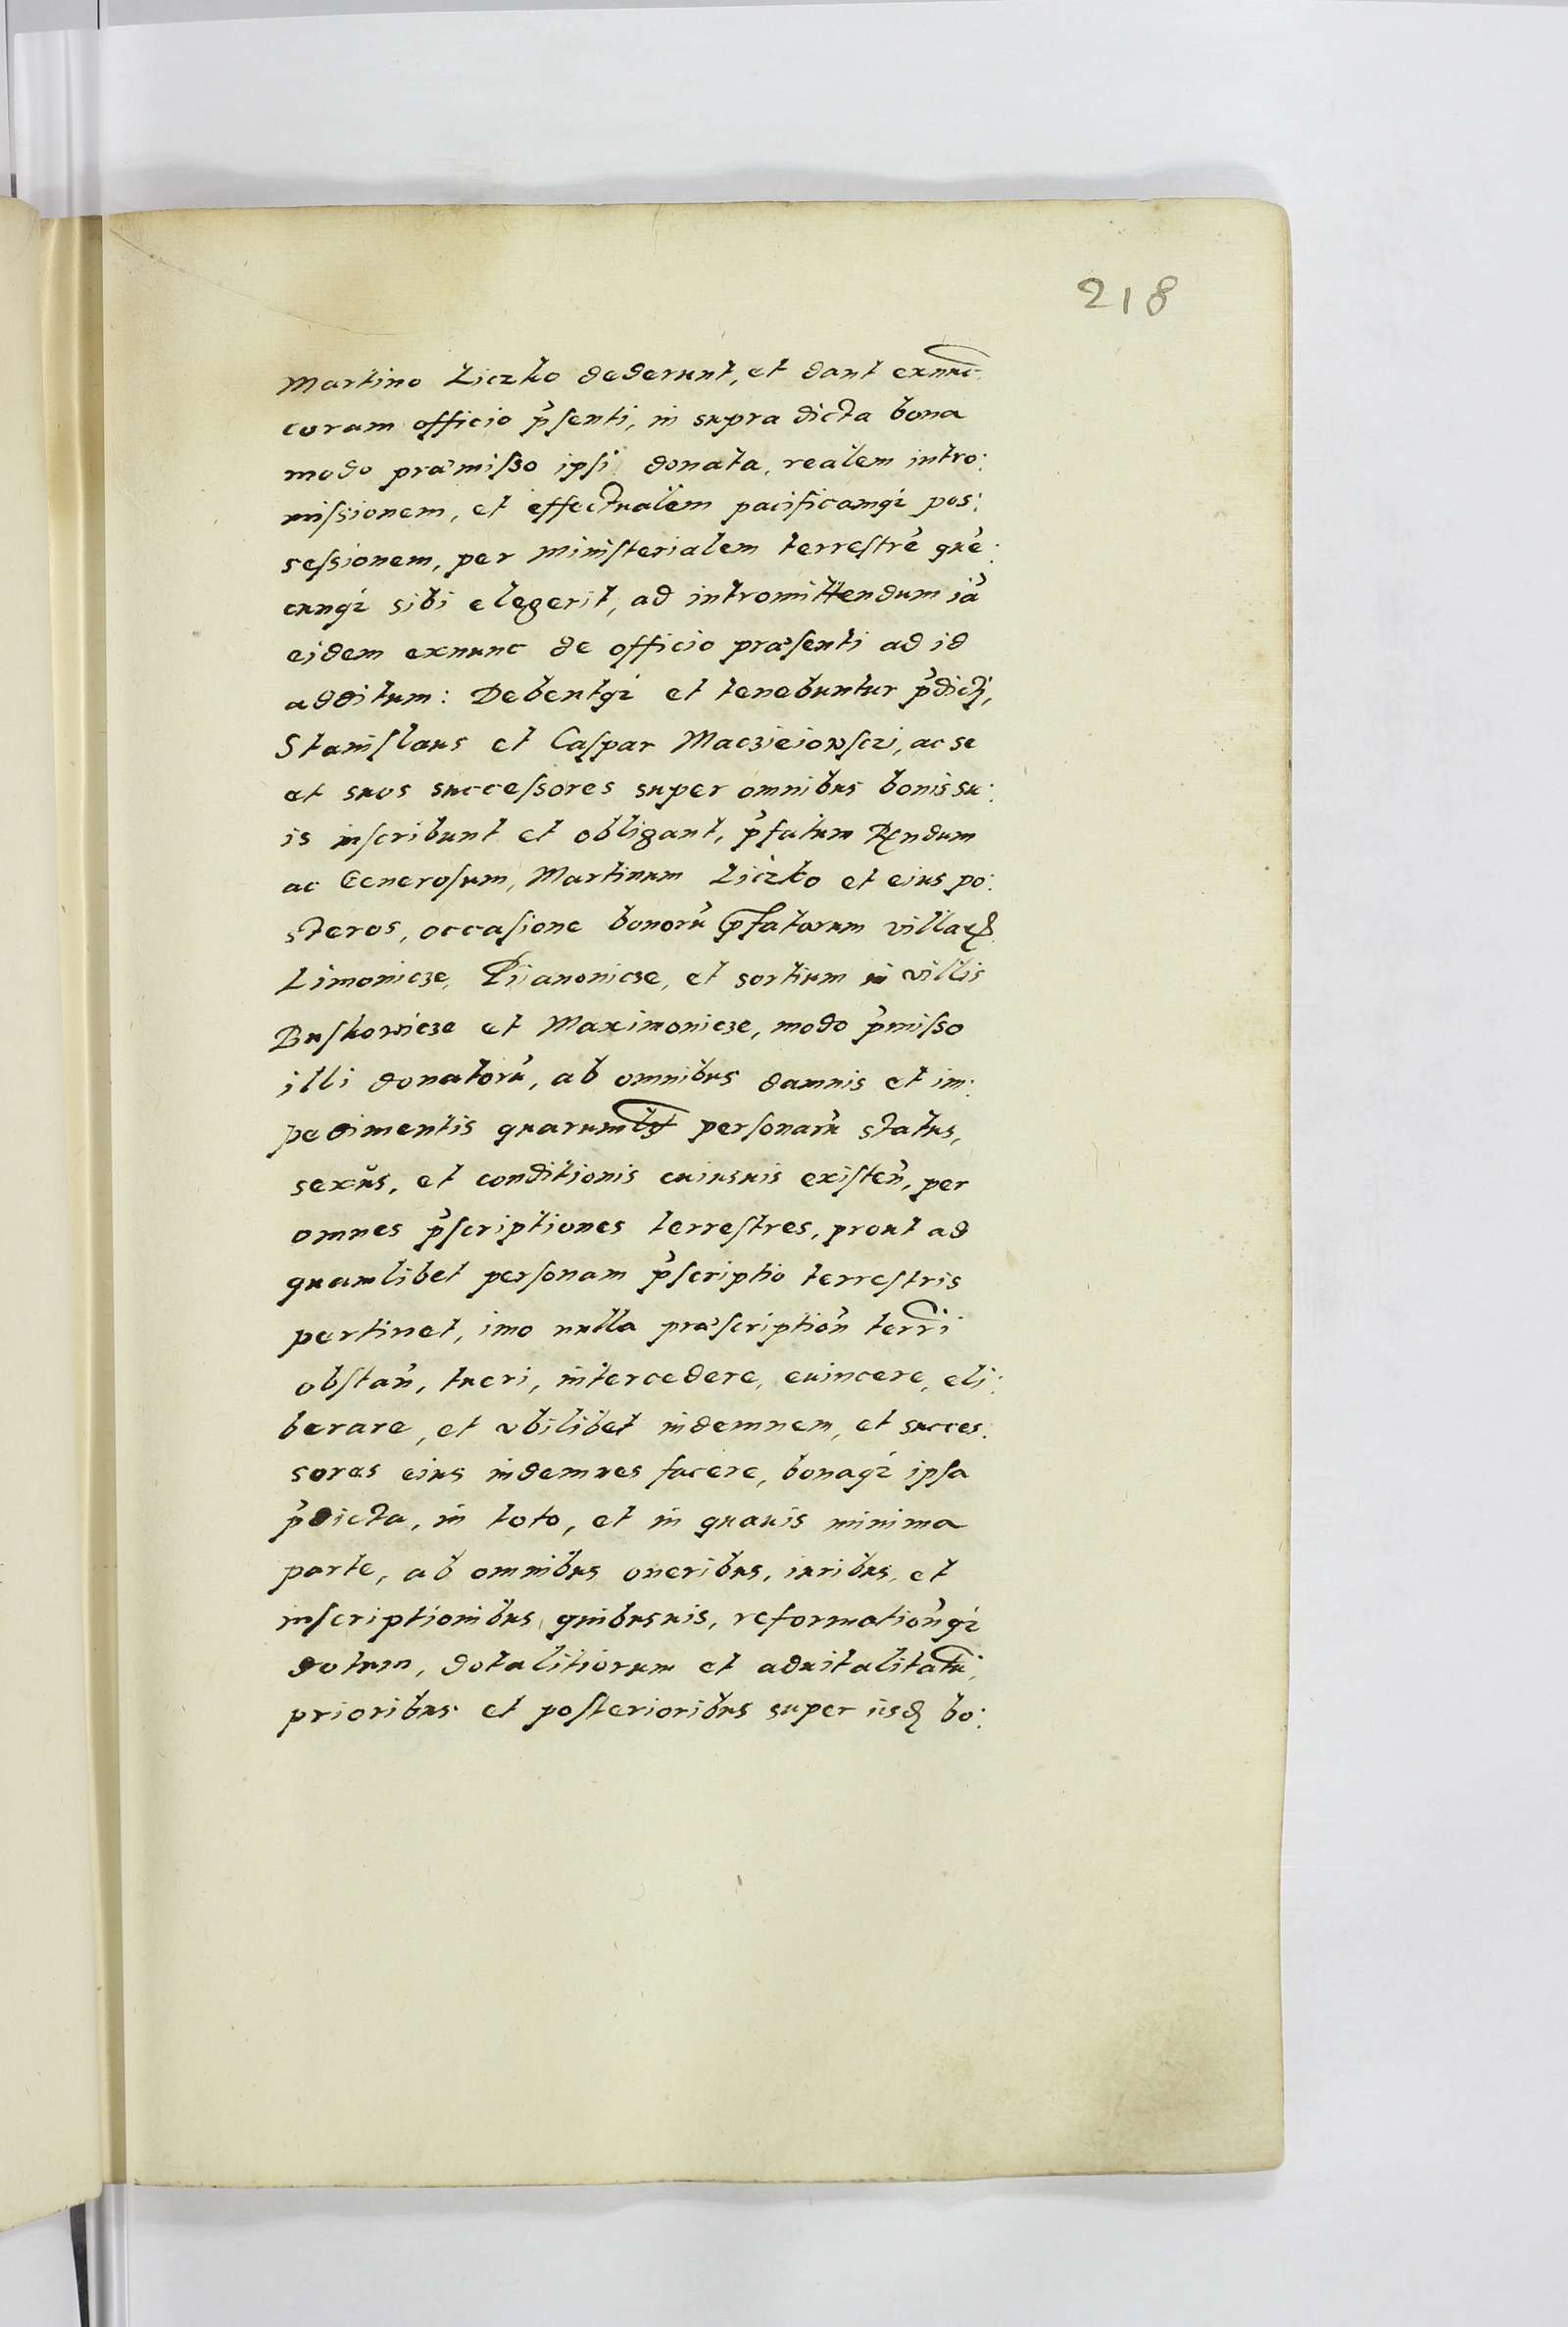 218
Martino Liczko dederunt, et dant exnuc
coram officio p̃senti, in supra dicta bona
modo præmisso ipsi donata, realem intro:
missionem, et effectualem pacificamq; pos:
sessionem, per ministerialem terrestrẽ quẽ:
cunq; sibi elegerit, ad intromittendum iã
eidem exnunc de officio præsenti ad id
additum: Debentq; et tenebuntur p̃dicti,
Stanislaus et Caspar Maczieiowsczi, ac se
et suos successores super omnibus bonis su:
is inscribunt et obligant, p̃fatum Rndum
ac Generosum, Martinum Liczko et eius po:
steros, occasione bonorũ p̃fatorum villarꝝ
Limonicze, Piianonicze, et sortium in villis
Buskowicze et Maximonicze, modo p̃misso
illi donatorũ, ab omnibus damnis et im:
pedimentis quarumlꝫt personarũ status,
sexus, et conditionis cuiusuis existeñ, per
omnes p̃scriptiones terrestres, prout ad
quamlibet personam p̃scriptio terrestris
pertinet, imo nulla præscriptioñ terri
obstañ, tueri, intercedere, euincere, eli:
berare, et vbilibet indemnem, et succes:
sores eius indemnes facere, bonaq; ipsa
p̃dicta, in toto, et in quauis minima
parte, ab omnibus oneribus, iuribus, et
inscriptionibus quibusuis, reformatioñq;
dotum, dotalitiorum et aduitalitatũ,
prioribus et posterioribus super iisdꝫ bo: